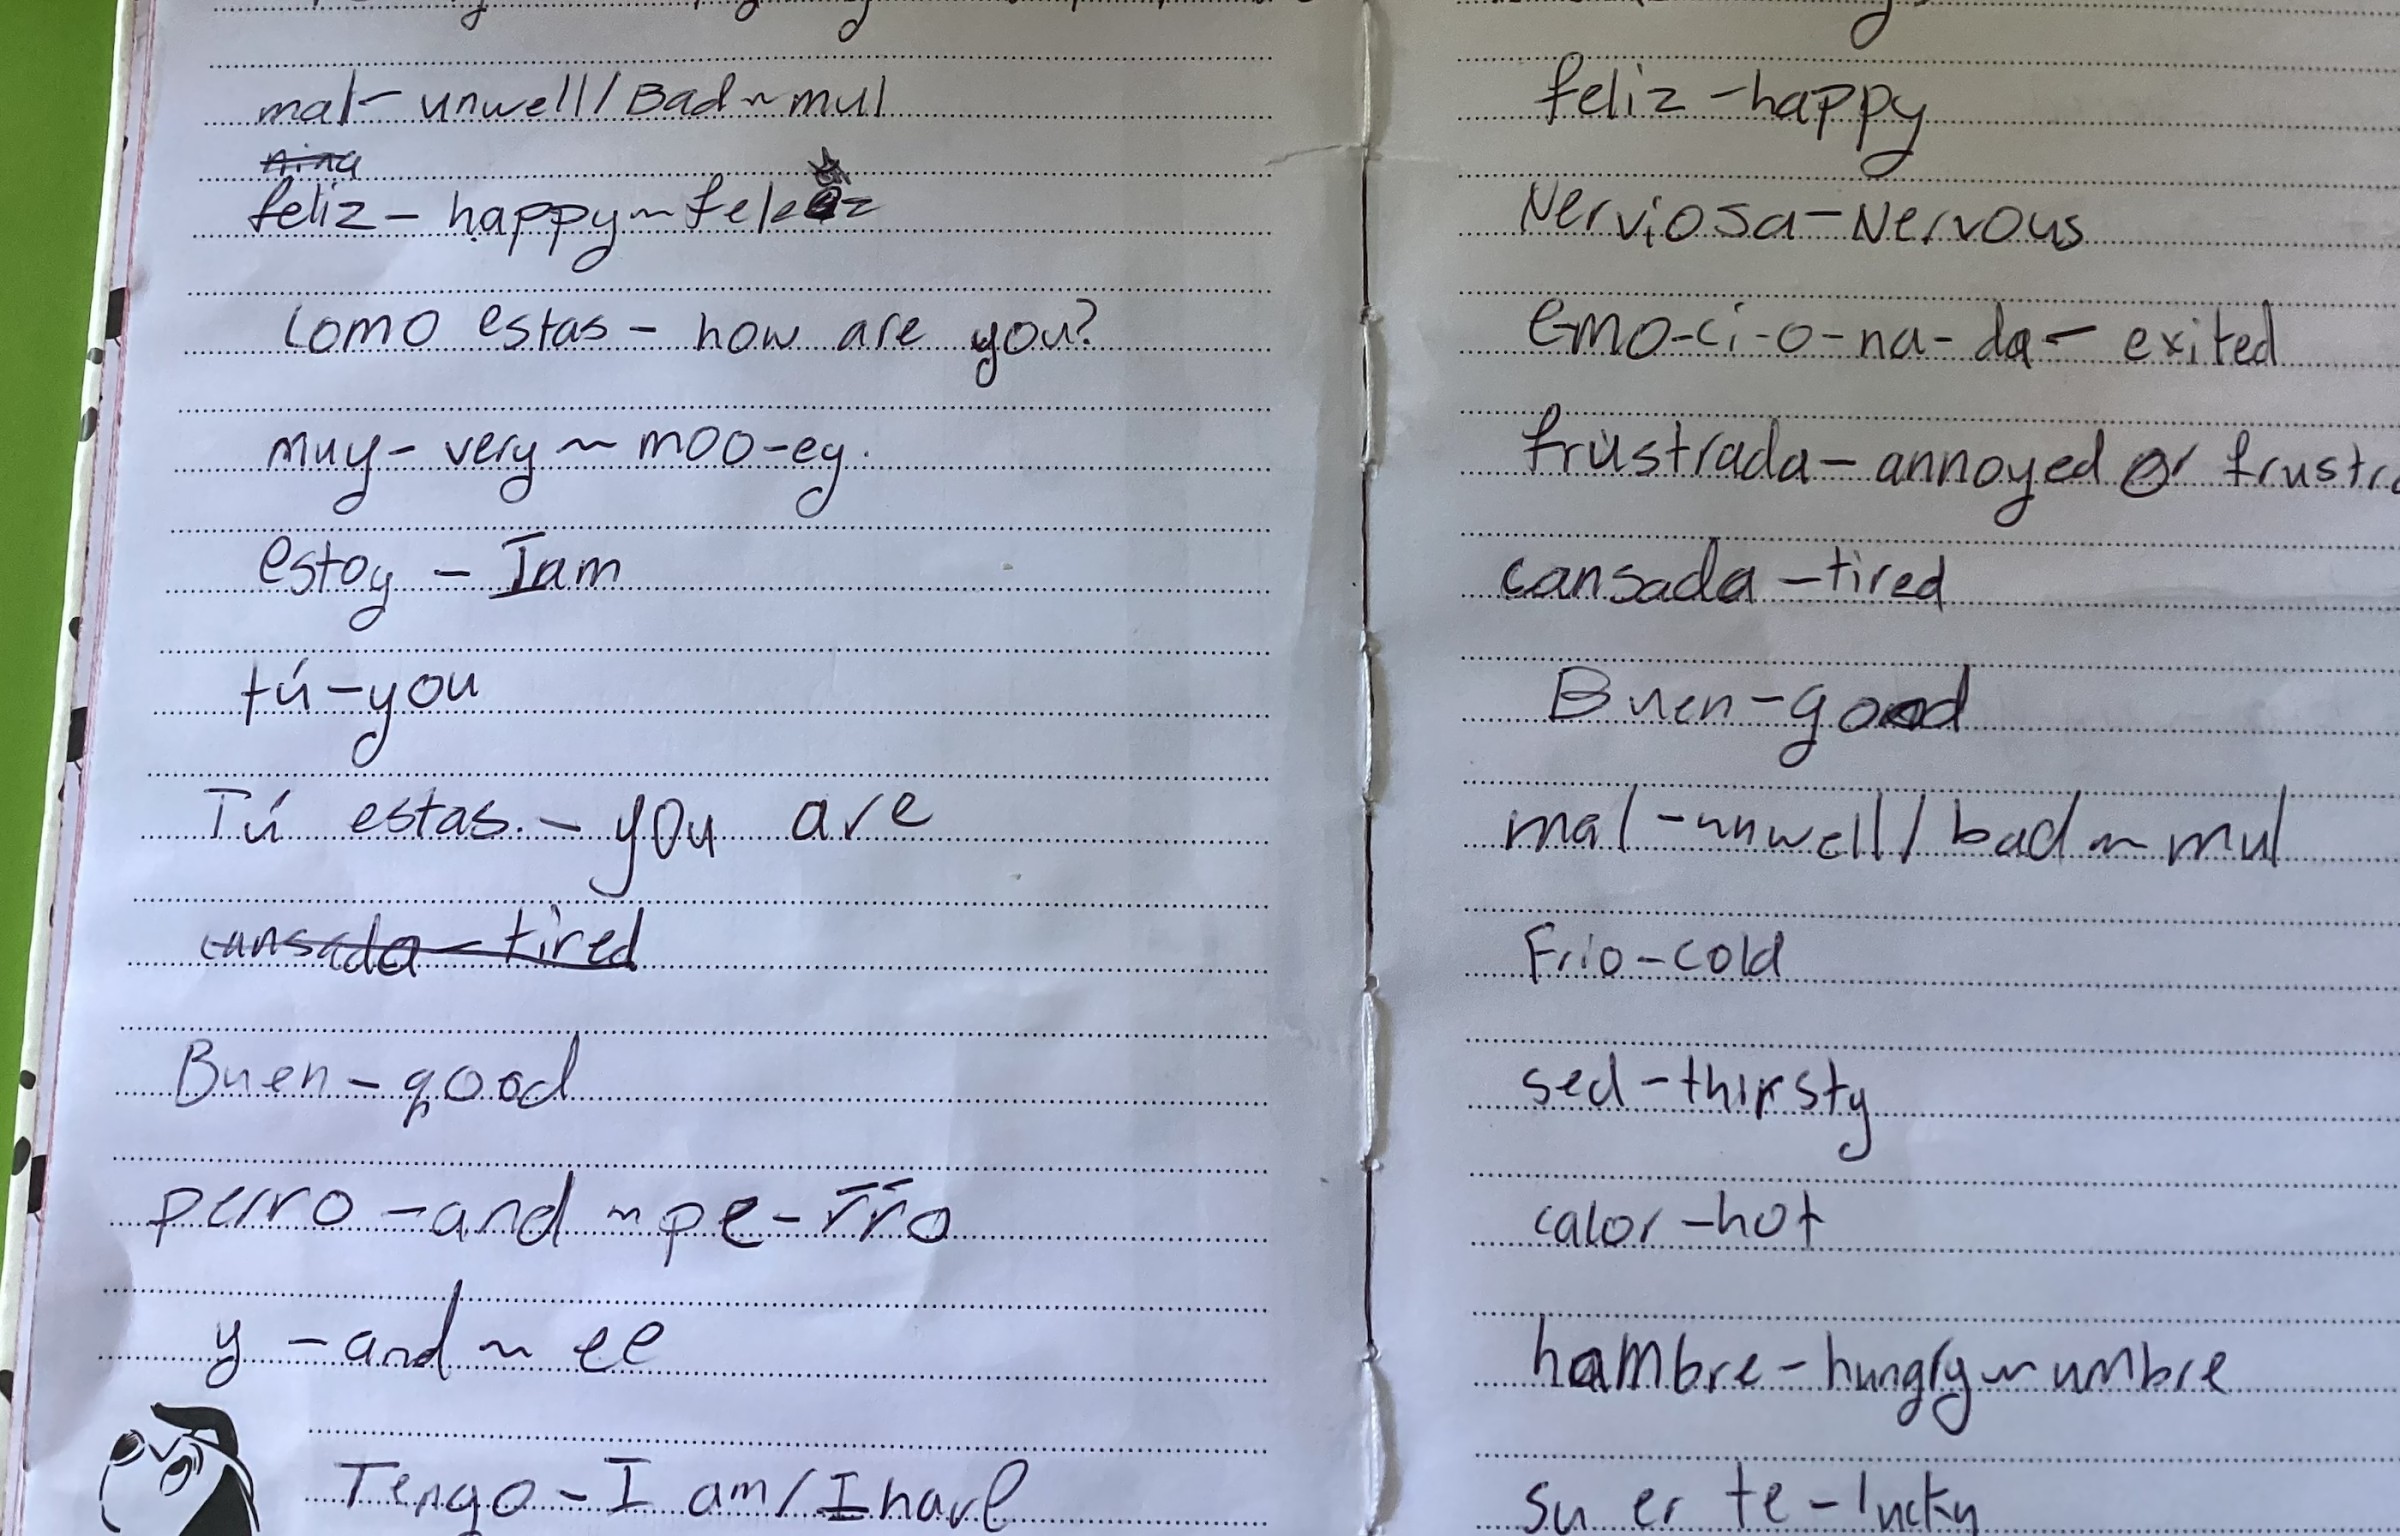 mal- unwell/Bad ~ mul
nina
feliz - happy ~
como estas - how are you?
muy- very ~ moo-ey.
estoy - I am
tú-you
Tú estas. - you are
cansada - tired
Buen - good
perro -and ~ pe-r̄r̄o
y -and ~ ee
Tengo - I am/I have
feliz -happy
Nerviosa-Nervous
emo-ci-o-na-da- exited
frustrada- annoyed or
cansada -tired
Buen-good
mal -unwell/bad ~ mul
Frio-cold
sed -thirsty
calor -hot
hambre-hungry ~ umbre
su er te -lucky